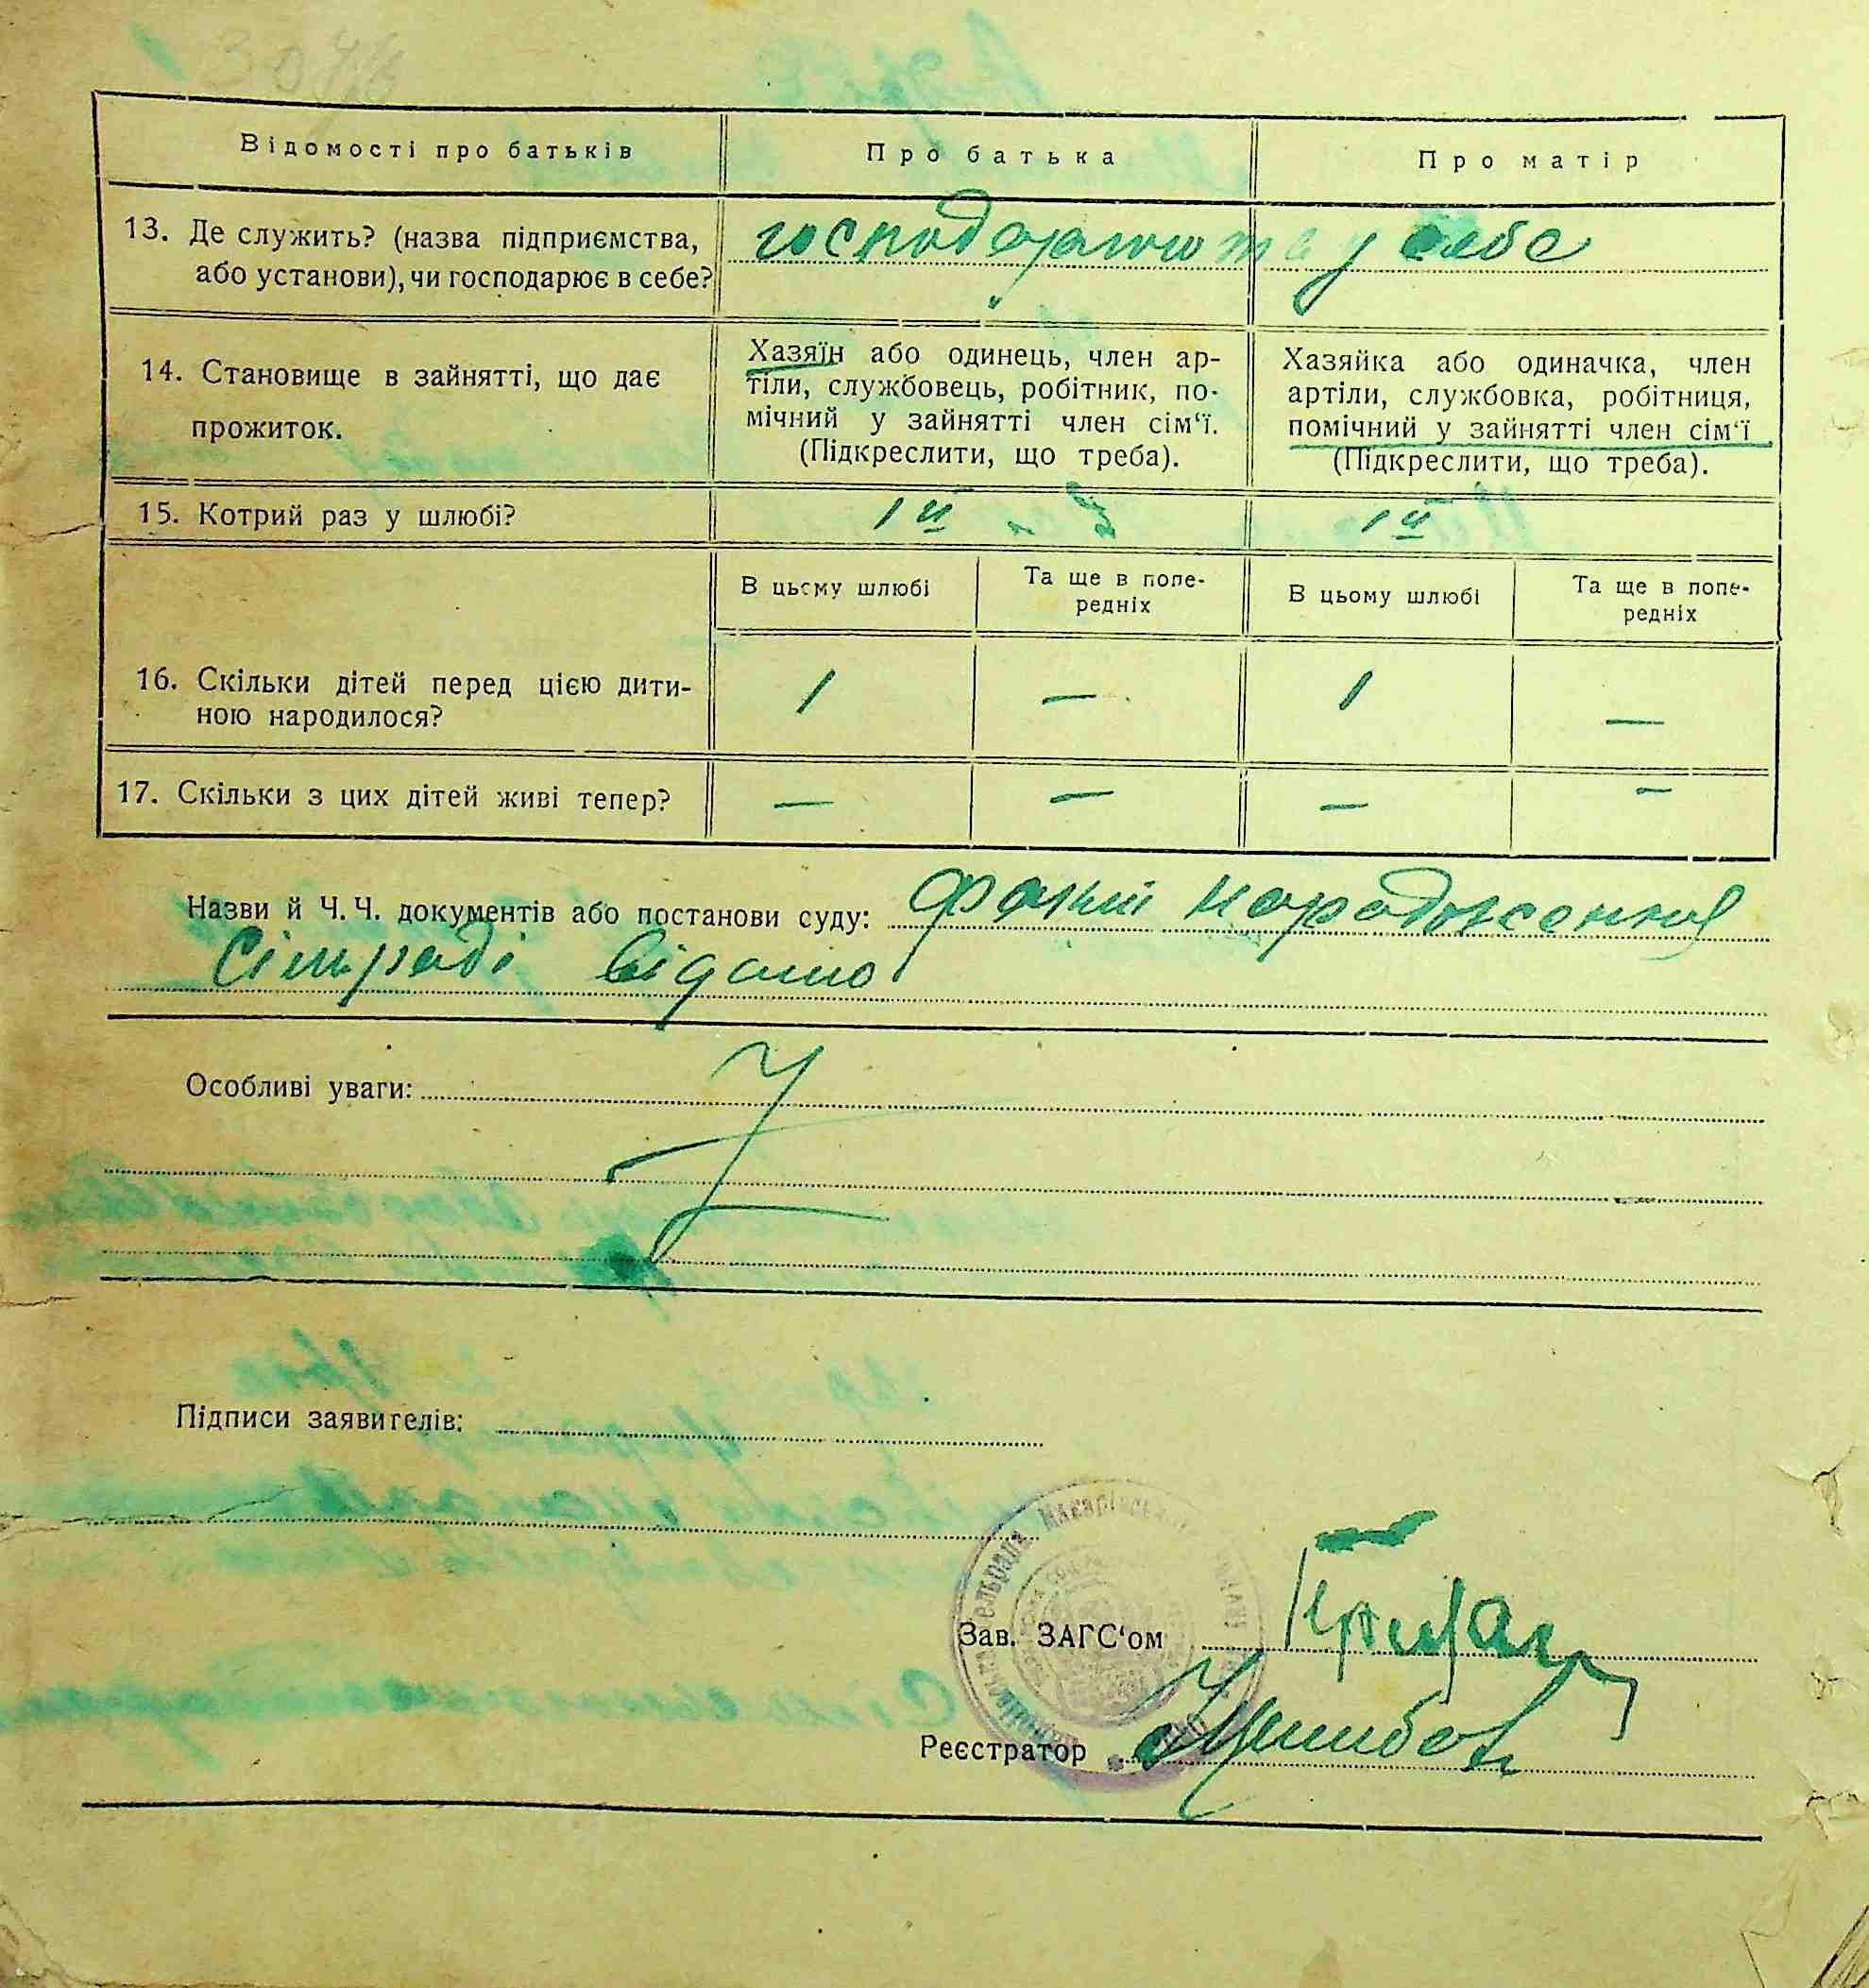 Відомості про батьків
Про батька
Про матір
13. Де служить? (назва підприємства,
або установи), чи господарює в себе?
господарюють у себе
14. Становище в зайнятті, що дає
прожиток.
Хазяїн або одинець, член ар-
тіли, службовець, робітник, по-
мічний у зайнятті член сім'ї.
(Підкреслити, що треба).
Хазяйка або одиначка, член
артіли, службовка, робітниця,
помічний у зайнятті член сім'ї
(Підкреслити, що треба).
15. Котрий раз у шлюбі?
1й
1й
В цьому шлюбі
Та ще в попе-
редніх
В цьому шлюбі
Та ще в попе-
редніх
16. Скільки дітей перед цією дити-
ною народилося?
1
—
1
—
17. Скільки з цих дітей живі тепер?
—
—
—
—
Назви й Ч.Ч. документів або постанови суду: факт народження
сільраді відомо
Особливі уваги:
Підписи заявителів:
Зав. ЗАГС'ом
Реєстратор